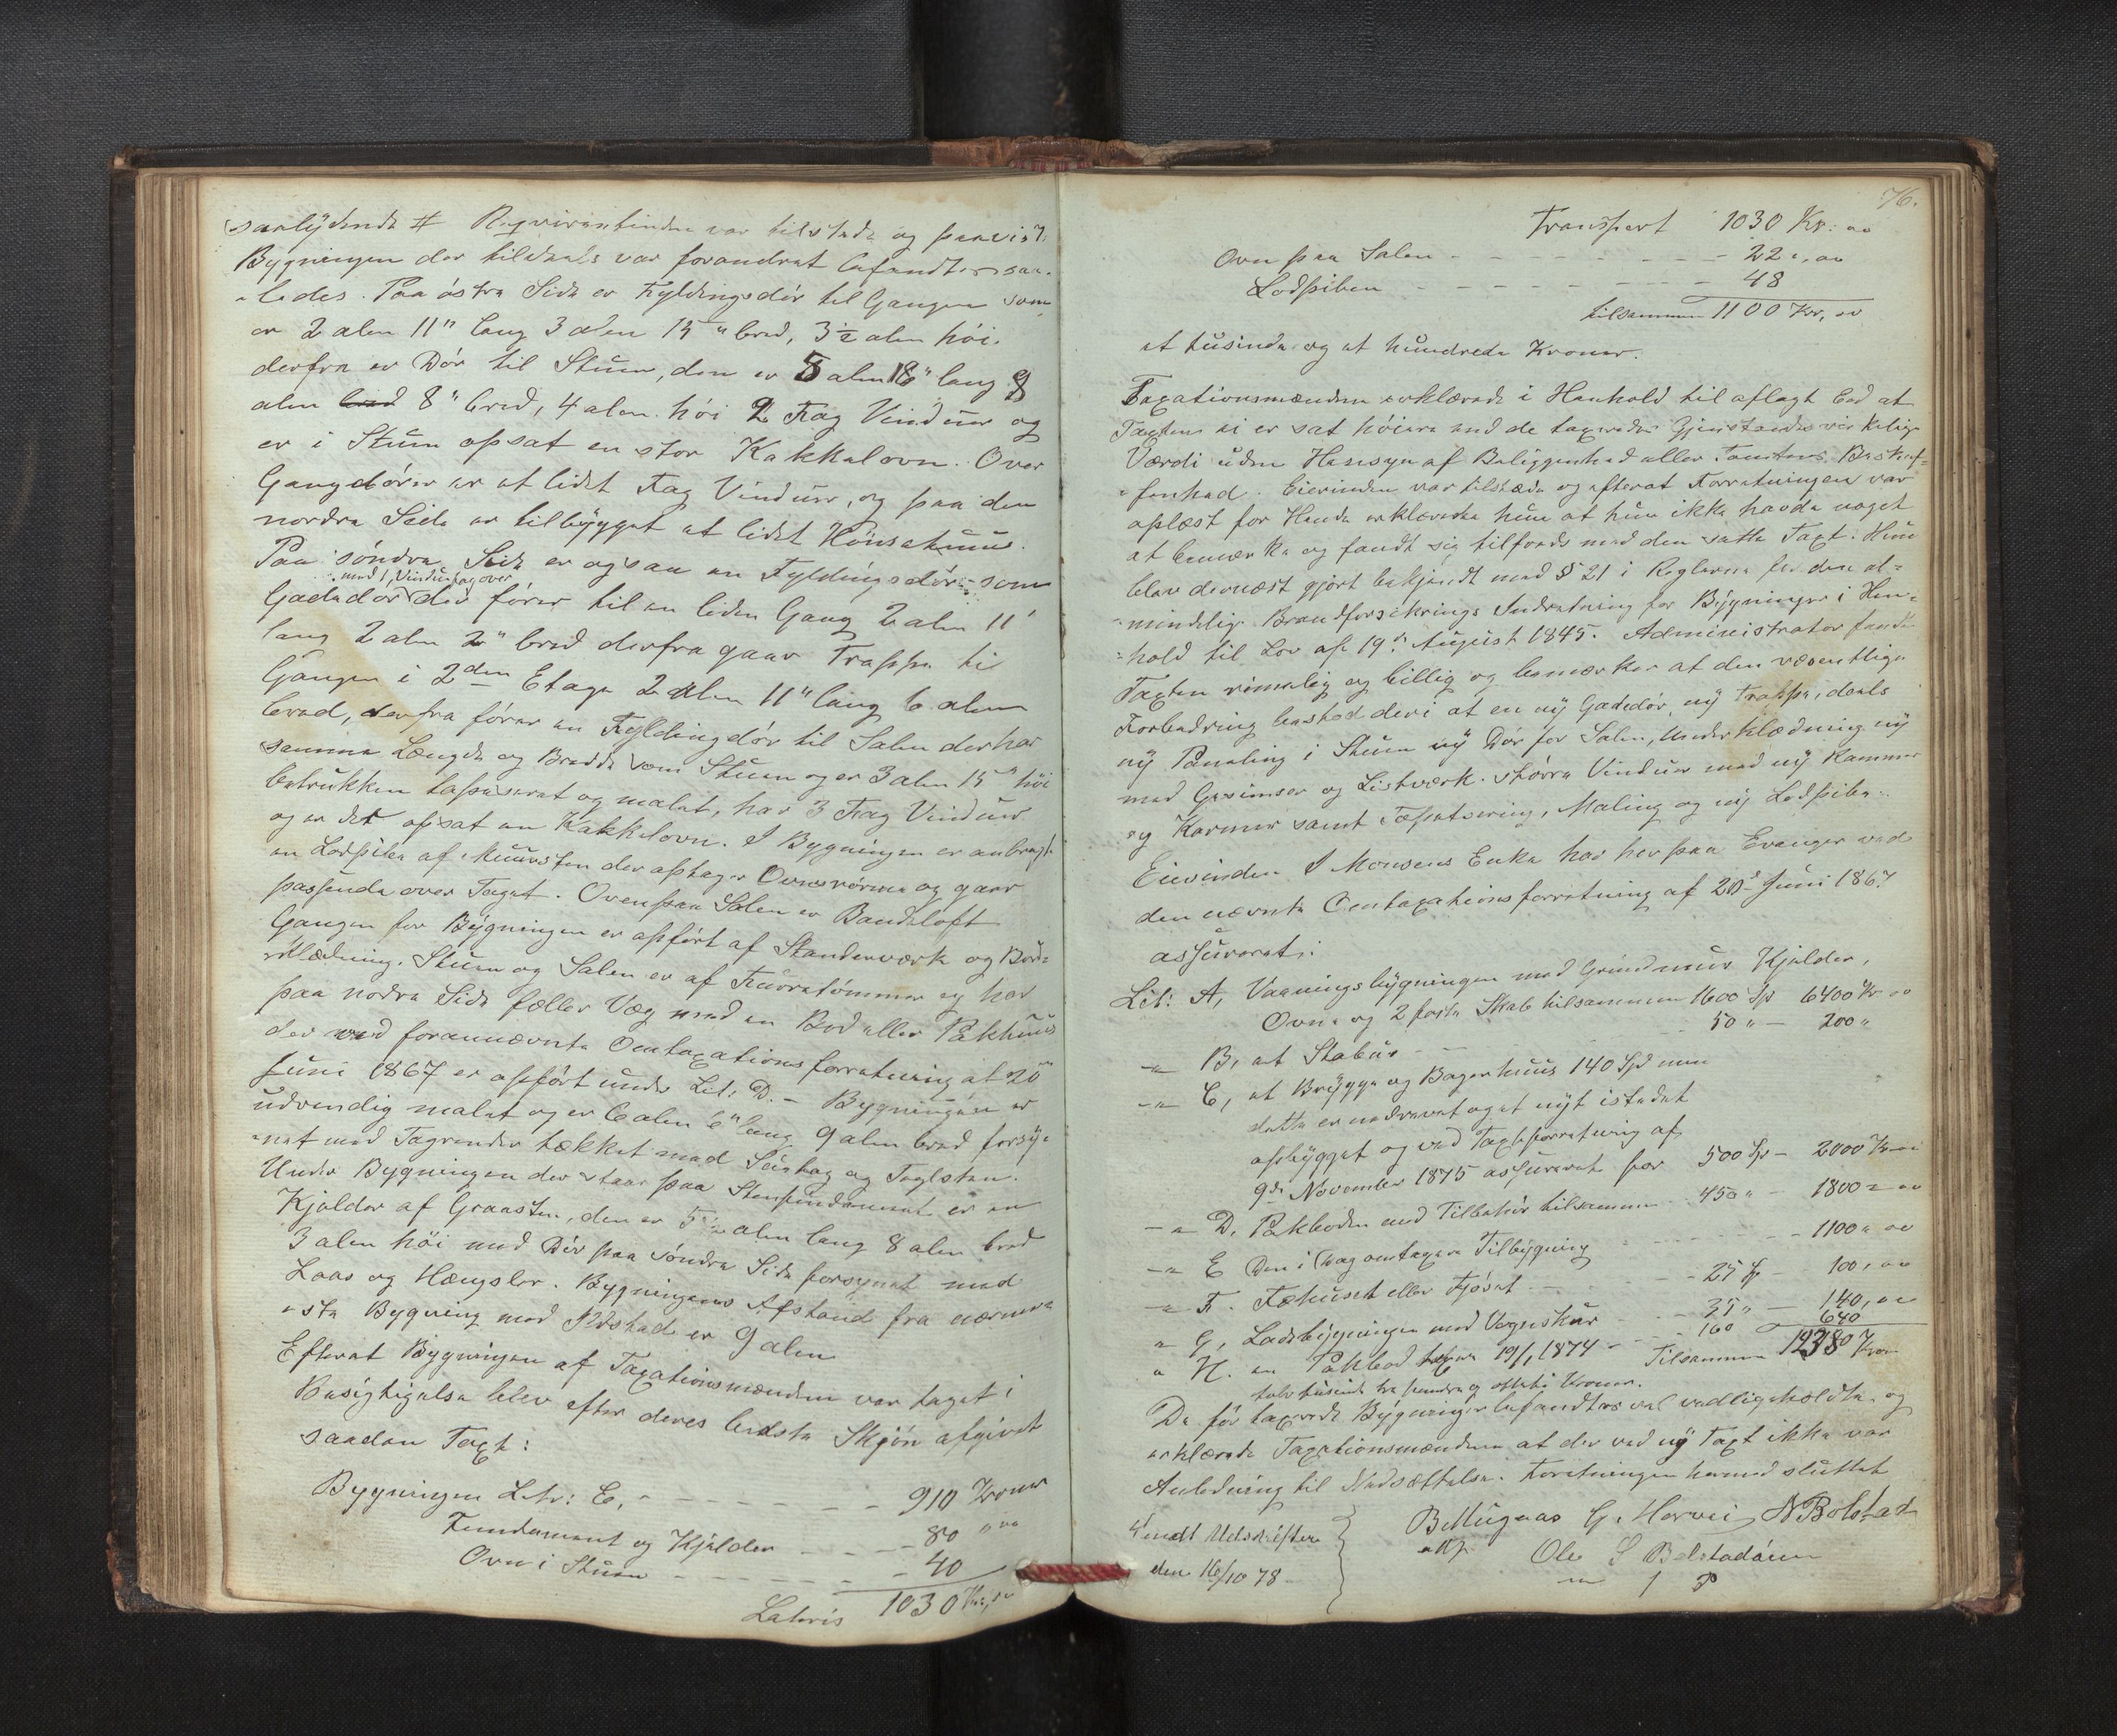 saalydende # Reqvirentinden var tilstede og paaviste
Bygningen der tildeels var forandret befandtes saa-
-ledes. Paa østre Side er Fyldingsdør til Gangen som
er 2 alen 11" lang 3 alen 15" bred, 3½ alen høi.
derfra er Dør til Stuen, den er 5 alen 18" lang 8
alen bred 8" bred, 4 alen høi 2 Fag Vinduer og
er i Stuen opsat en stor Kakkelovn. Over
Gangdøren er et lidet Fag Vinduer, og paa den
nordre Side er tilbygget et lidet Hønsehuus.
Paa søndre Side er ogsaa en Fyldingsdør som
med 1 Vinduesfag over
Gadedør der fører til en liden Gang 2 alen 11"
lang 2 alen 2" bred derfra gaar Trappe til
Gangen i 2den Etage 2 alen 11" lang 6 alen
bred, derfra fører en Fyldingdør til Salen der har
samme Længde og Bredde som Stuen og er 3 alen 15" høi
betrukken tapeseret og malet, har 3 Fag Vinduer
og er det opsat en Kakkelovn. I Bygningen er anbragt
en Lodpibe af Muursten der optager Ovnsrørene og gaar
passende over Taget. Ovenpaa Salen er Bandeloft
Gangen for Bygningen er opført af Standerværk og Bord-
klædning. Stuen og Salen er af Furretømmer og har
paa nodre Side fælles Væg med en Bod eller Pakhuus
der ved forannævnte Omtaxationsforretning at 20de
Juni 1867 er opført under Lit: D. – Bygningen er
udvendig malet og er 6 alen 6" lang 9 alen bred forsy-
-net med Tagrender tækket med Seistag og Taglsten.
Under Bygningen der staar paa Stenfundament er en
Kjelder af Graasten, den er 5½ alen lang 8 alen bred
3 alen høi med Dør paa søndre Side forsynet med
Laas og Hængsler. Bygningens Afstand fra nærme-
-ste Bygning med Ildsted er 9 alen
Efterat Bygningen af Taxationsmændene var taget i
Besigtigelse blev efter deres bedste Skjøn afgivet
saadan Taxt:
Bygningen Litr: E, - - - - - - 910 Kroner
Fundament og Kjelder - - - - 80 " "
Ovn i Stuen - - - - - - 40
Lateris 1030 Kr, "
76.
Transport 1030 Kr: "
Ovn paa Salen - - - - - - - 22 ", "
Lodpiben - - - - - - - 48
tilsammen 1100 Kr, "
et tusinde og et hundrede Kroner.
Taxationsmændene erklærede i Henhold til aflagt Eed at
Taxten ei er sat høiere end de taxerede Gjenstandes virkelige
Værdi uden Hensyn af Beliggenhed eller Tomtens Beskaf-
-fenhed. Eierinden var tilstede og efterat Forretningen var
oplæst for Hende erklærede hun at hun ikke havde noget
at bemærke og fandt sig tilfreds med den satte Taxt. Hun
blev dernæst gjort bekjendt med § 21 i Reglerne for den al-
-mindelige Brandforsikrings Indretning for Bygninger i Hen-
-hold til Lov af 19de August 1845. Administrator fandt
Taxten rimelig og billig og bemærker at den væsentlige
Forbedring bestod deri at en ny Gadedør, ny Trappe, deels
ny Paneling i Stuen ny Dør for Salen, Underklædning ny
med Gesimser og Listværk. større Vinduer med ny Rammer
og Karmer samt Tapetsering, Maling og ny Lodpibe.
Eierinden I Monsens Enke har her paa Evanger ved
den nævnte Omtaxationsforretning af 20de Juni 1867
assureret:
Lit: A, Vaaningsbygningen med Grundmuur Kjelder,
Ovne og 2 faste Skab tilsammen 1600 Spd 6400 Kr "
-"- B, et Stabur - - 50 " - 200 "
-"- C, et Brygge og Bagerhuus 140 Spd men
dette er nedrevet og et nyt istedet
opbygget og ved Taxtforretning af
9de November 1875 assureret for 500 Sp - 2000 Kr "
-"- D. Pakboden med Tilbehør tilsammen 450 " - 1800 " "
-"- E Den i Dag omtaxere Tilbygning - - - - 1100 " "
-"- F. Fæhuset eller Fjøset - - - 25 Sp - 100, "
" G, Ladebygningen med Vognskur - - 35 " - 140, "
" H. en Pakbod 19/1 1874 - - 160 640
Tilsammen 12380 Kr
tolv tusinde tre hundre og otteti Kroner.
De før taxerede Bygninger befandtes vel vedligeholdte og
erklærede Taxationsmændene at der ved ny Taxt ikke var
Anledning til Nedsættelse. Forretningen hermed sluttet
Sendt Udskriften
den 16/10 78
B Mugaas G. Horvei N Bolstad
Ole S Bolstadøren